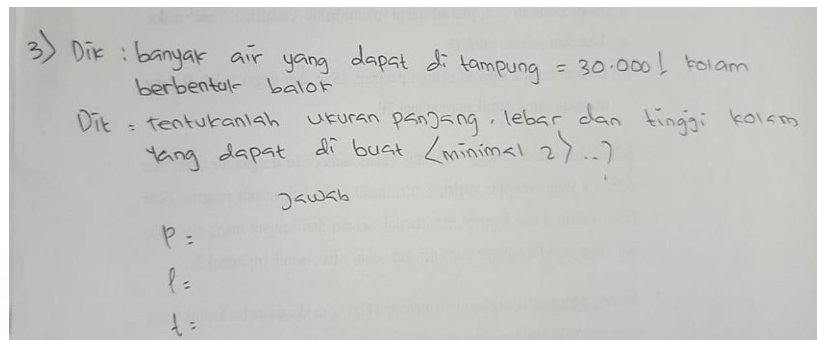 3) Dik : banyak air yang dapat di tampung = 30.000 l kolam
berbentuk balok
Dit = tentukanlah ukuran panjang, lebar dan tinggi kolam
yang dapat di buat <minimal 2> ..?
Jawab
P =
l =
t =